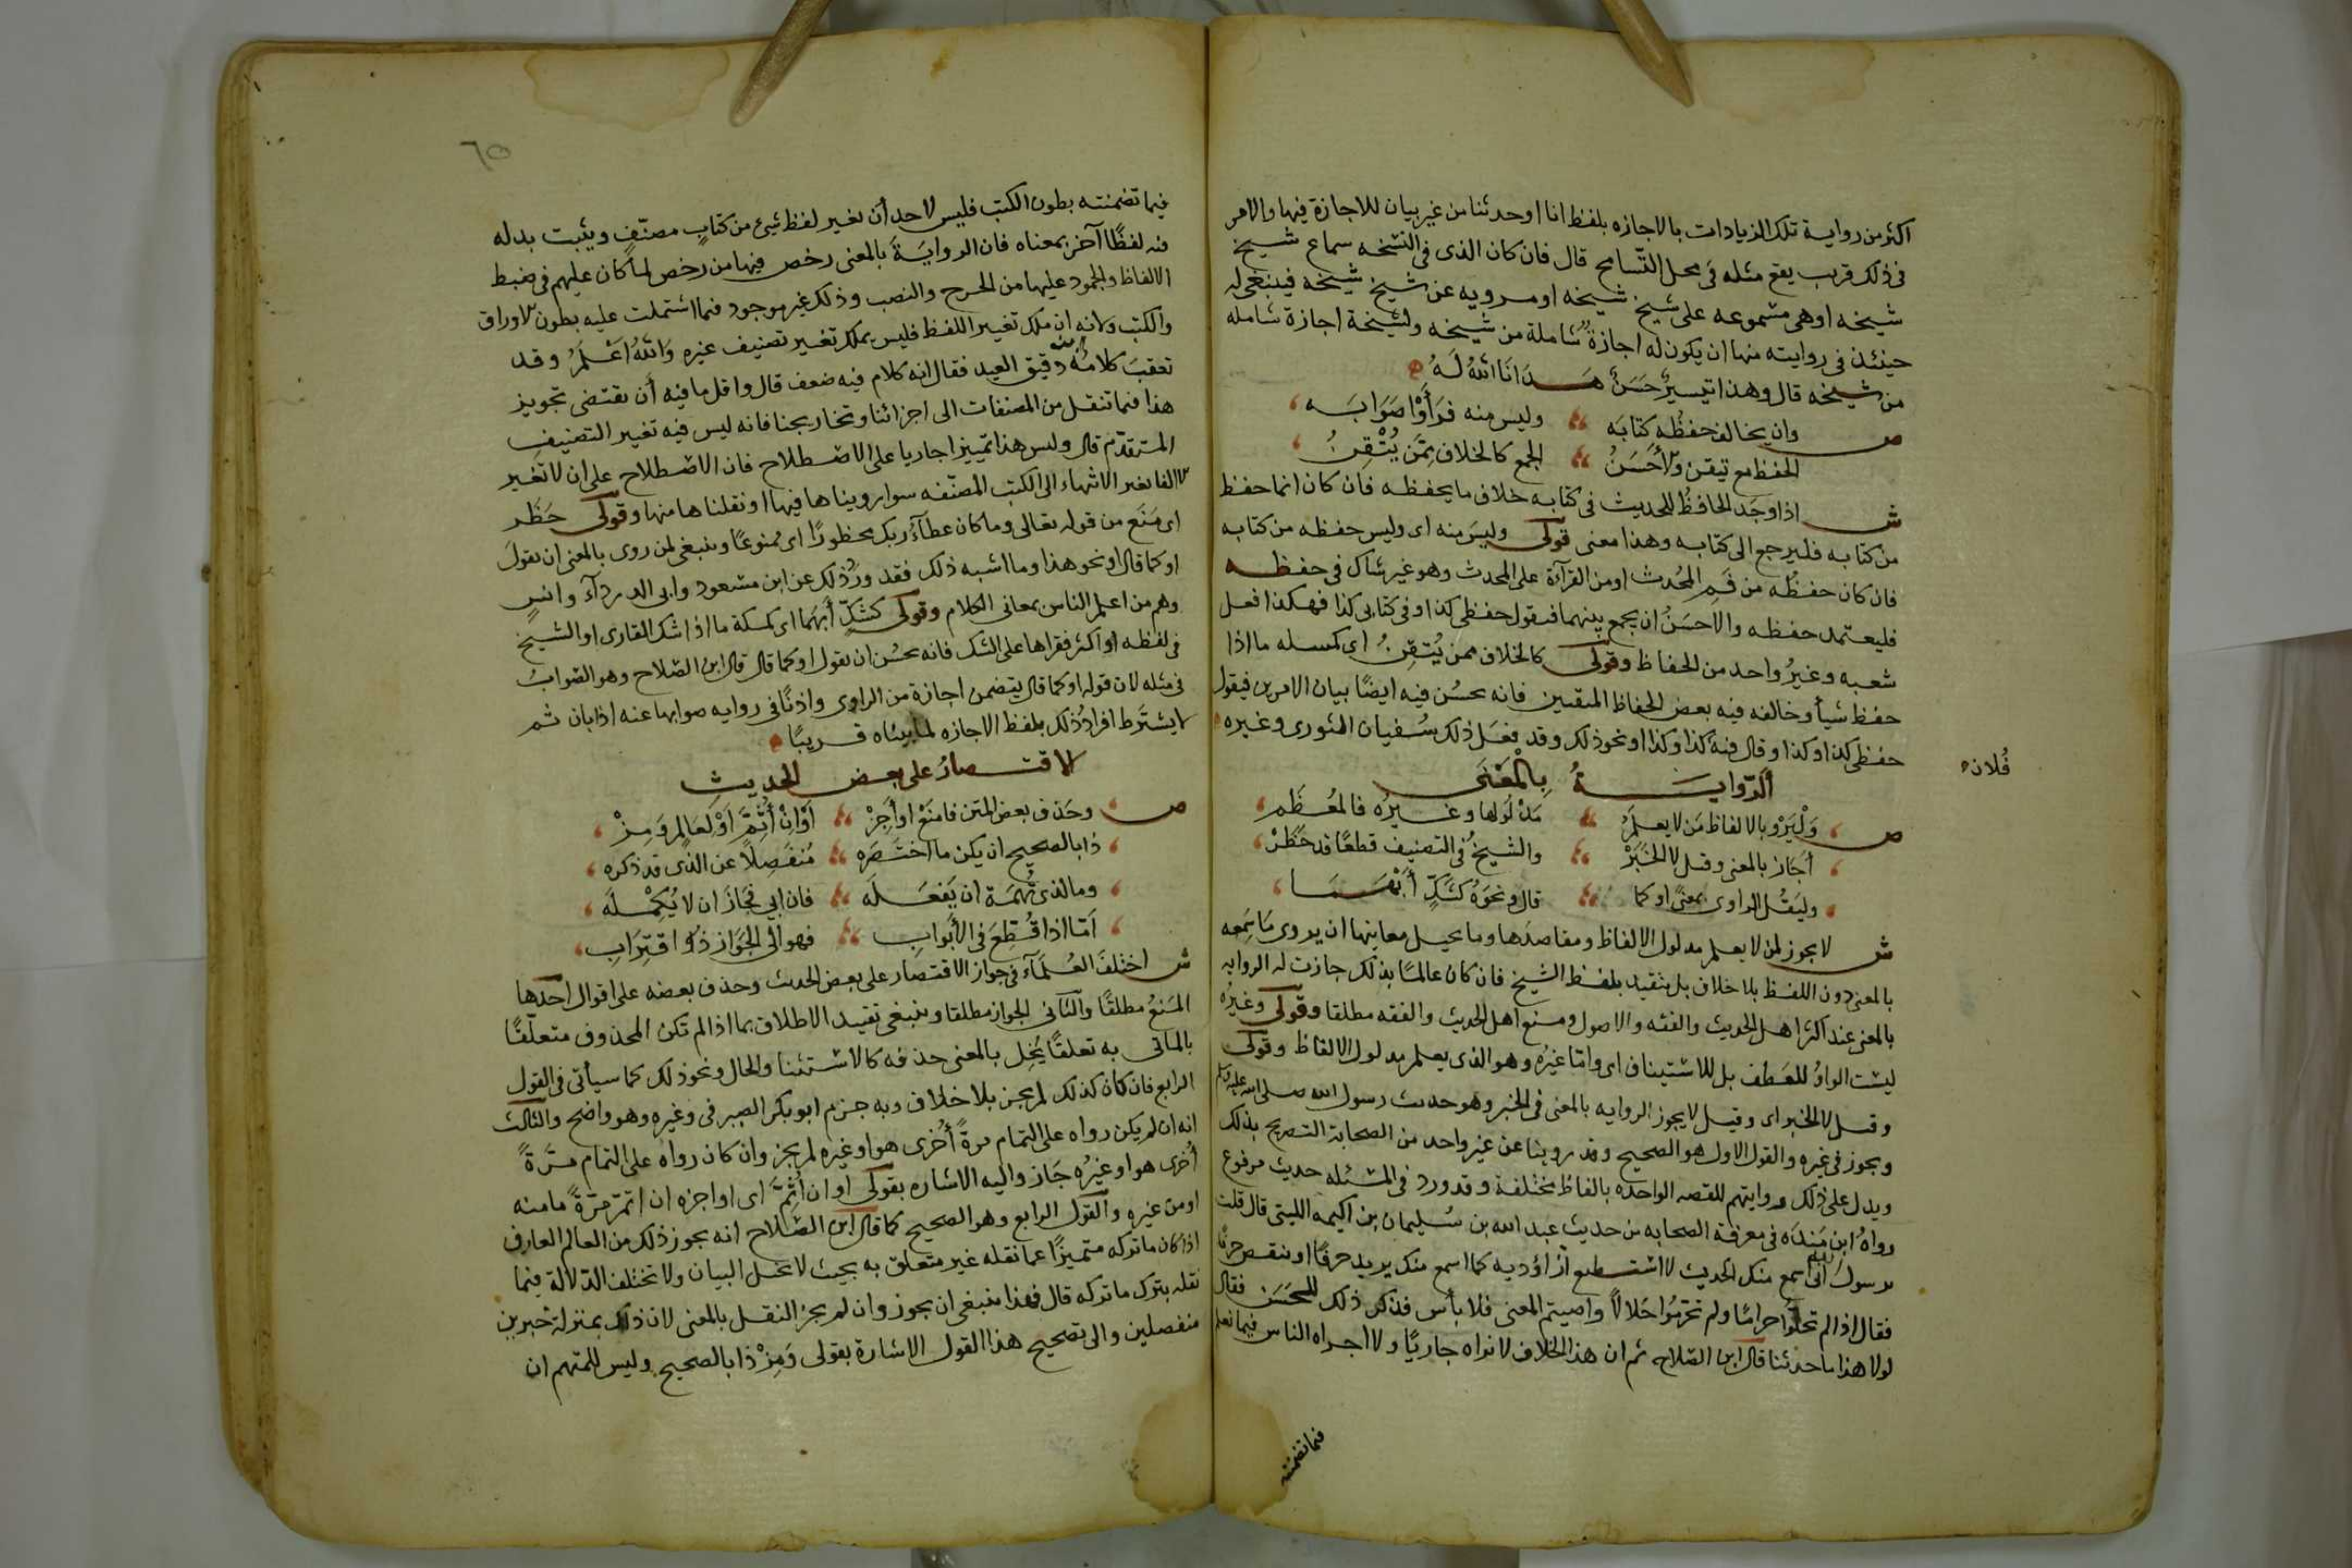 اكثر من رواية تلك الزيادات بالاجازه بلفظ انا او حدثنا من غير بيان للاجازة فيها والامر
فى ذلك قريب يقع مثله فى محل التسامح قال فان كان الذى فى النسخه سماع شيخ
شيخه او هى مسموعه على شيخ شيخه او مرويه عن شيخ شيخه فينبغى له
حينئذ فى روايته منها ان يكون له اجازةٌ شاملة من شيخه ولشيخة اجازة شامله
من شيخه قال وهذا تيسيرٌ حَسَنٌ هَدَانَا اللهُ لَهُ
ص وان يخالف حفظُه كتابَه وليس منه فرَأَوْا صَوَابَه
الحفظ مع تيقن والأحسَنُ الجمع كالخلاف مِمَّن يُتْقِنُ
ش اذا وجَد الحافظُ للحديث فى كتابه خلاف ما يحفظه فان كان انما حفظ
من كتابه فليرجع الى كتابه وهذا معنى قولى وليسَ منه اى وليس حفظه من كتابه
فان كان حفظُه من فَمِ المُحدث او من القرآءة على المحدث وهو غير شاك فى حفظه
فليعتمد حفظه والاحسَنُ ان يجمع بينهما فيقول حفظى كذا وفى كتابى كذا فهكذا فعل
شعبه وغيرُ واحد من الحفاظ وقولى كالخلاف ممن يُتقِنُ اى كمسله ما اذا
حفظ شيأ وخالفه فيه بعض الحفاظ المتقنين فانه يحسُن فيه ايضًا بيان الامرين فيقول
حفظى كذا وكذا وقال فيه كذا وكذا او نحو ذلك وقد فعَل ذلك سُفيان الثورى وغيره
فُلان
الرّوايَةُ بِالْمَعْنَى
ص وَلْيَرْوِ بالالفاظ مَن لا يعلَمُ مَدْلُولها وغيرُه فالمُعْظَم
أجَاز بالمعنى وقيل لا الخَبَرْ والشيخُ فى التصنيف قطعًا قد حَظَرْ
وليقُل الراوى بمعنىً او كما قال ونحوَهُ كشَكٍّ أُبْهِمَا
ش لا يجوز لمن لا يعلم مدلول الالفاظ ومقاصدَها وما يحيل معانيها ان يروى مَا سَمِعه
بالمعنى دون اللفظ بلا خلاف بل يتقيد بلفظ الشيخ فان كان عالمًا بذلك جازت له الروايه
بالمعنى عند اكثر اهل الحديث والفقه والاصول ومنع اهل الحديث والفقه مطلقا وقولى وغيرُه
ليست الواوُ للعَطف بل للاستيناف اى واما غيرُه وهو الذى يعلم مدلول الالفاظ وقولى
وقيل لا الخبر اى وقيل لا يجوز الروايه بالمعنى فى الخبر وهو حديث رسول الله صلى الله عليه وسلم
ويجوز فى غيره والقول الاول هو الصحيح وقد روينا عن غير واحد من الصحابة التصريح بذلك
ويدل على ذلك روايتهم للقصه الواحده بالفاظ مختلفة وقد ورد فى المسئله حديث مرفوع
رواهُ ابن مَندَه فى معرفة الصحابه من حديث عبد الله بن سُليمان بن اكيمه الليثى قال قلت
يرسول الله انى اسمع منك الحديث لا استطيع ان اؤديه كما اسمع منك يزيد حرفًا او ينقص حرفًا
فقال اذا لم تحلُوا حرامًا ولم تحرّمُوا حَلالاً واصبتم المعنى فلا بأس فذكر ذلك للحَسَن فقال
لولا هذا ما حدثنا قال ابن الصّلاح ثم ان هذا الخلاف لا نراه جاريًا ولا اجراه الناس فيما نعلم
فيما تضمنته
٦٥
فيما تضمنته بطون الكتب فليس لاحد أن يغير لفظ شئ من كتابٍ مصنّفٍ ويثبت بدله
فيه لفظًا آخر بمعناه فان الروايَةَ بالمعنى رخص فيها من رخص لما كان عليهم فى ضبط
الالفاظ والجمود عليها من الحرج والنصب وذلك غير موجود فيما اشتملت عليه بطون الاوراق
والكتب ولانه ان ملك تغيير اللفظ فليس يملك تغيير تصنيف غيره وَاللهُ اَعْلَمُ وقد
تعقبَ كلامَهُ ابن دقيق العيد فقال انه كلام فيه ضعف قال واقل ما فيه أن يقتضى تجويز
هذا فيما تنقل من المصنفات الى اجزائنا وتخاريجنا فانه ليس فيه تغيير التصنيف
المتقدّم قال وليس هذا تمييزا جاريا على الاصطلاح فان الاصطلاح على ان لا تغير
الالفاظ بعد الانتهاء الى الكتب المصنّفه سوا رويناها فيها او نقلناها منها وقولى حَظَر
اى مَنَع من قوله تعالى وما كان عطآءُ ربك محظورًا اى ممنوعًا وينبغى لمن روى بالمعنى ان يقولَ
او كما قال او نحو هذا وما اشبه ذلك فقد ورَد ذلك عن ابن مسعود وابى الدردآء وانسٍ
وهم من اعلم الناس بمعانى الكلام وقولى كشَكٍّ أُبهِمَا اى كمسئلة ما اذا شك القارى او الشيخ
فى لفظه او اكثر فقراها على الشك فانه يحسُن ان يقول او كما قال قال ابن الصّلاح وهو الصّوابُ
فى مثله لان قوله او كما قال يتضمن اجازة من الراوى واذنًا فى روايه صوابها عنه اذا بان ثم
لا يشتَرط افرادُ ذلك بلفظ الاجازه لما بيناه قريبًا
الاقتصارُ على بعض الحديثِ
ص وحَذف بعض المتن فامنَعْ او أَجِزْ أوْ اِنْ أُتِمَّ اَوْ لعَالمٍ وَمِزْ
ذا بالصحيح ان يكن ما اختَصَرَه مُنفَصِلًا عن الذى قد ذكره
وما لذى تُهمَة ان يَفعَلَه فان ابى فجَازَ ان لا يُكمِلَه
اَمّا اذا قُطِّعَ فى الأبوابِ فهو الى الجَوَاز ذُو اقتِرَابِ
ش اختلفَ العُلَمَآءُ فى جواز الاقتصار على بعض الحديث وحذف بعضه على اقوال احدُها
المَنعُ مطلقًا والثانى الجواز مطلقا وينبغى تقييد الاطلاق بما اذا لم تكن المحذوف متعلّقًا
بالماتى به تعلقًا يُخِل بالمعنى حذفه كالاستثنا والحال ونحو ذلك كما سيأتى فى القول
الرابع فان كان كذلك لم يجز بلا خلاف وبه جزم ابو بكر الصيرفى وغيره وهو واضح والثالث
انه ان لم يكن رواه على التمام مرةً أُخرى هو او غيره لم يجز وان كان رواه على التمام مَرَّةً
أخرى هو او غيرُه جَاز واليه الاشاره بقولى او ان اُتِمَّ اى او اجزه ان اتم مَرّةً ما منه
او من غيره والقول الرابع وهو الصحيح كما قال ابن الصّلاح انه يجوز ذلك من العالم العارف
اذا كان ما تركه متميزًا عما نقله غير متعلق به بحيث لا يختل البيان ولا تختلف الدّلالة فيما
نقله بترك ما تركه قال فهذا ينبغى ان يجوز وان لم يجز النقل بالمعنى لان ذلك بمنزلة خبرين
منفصلين والى تصحيح هذا القول الاشارة بقولى وَمِزْ ذا بالصحيح وليس للمتهم ان